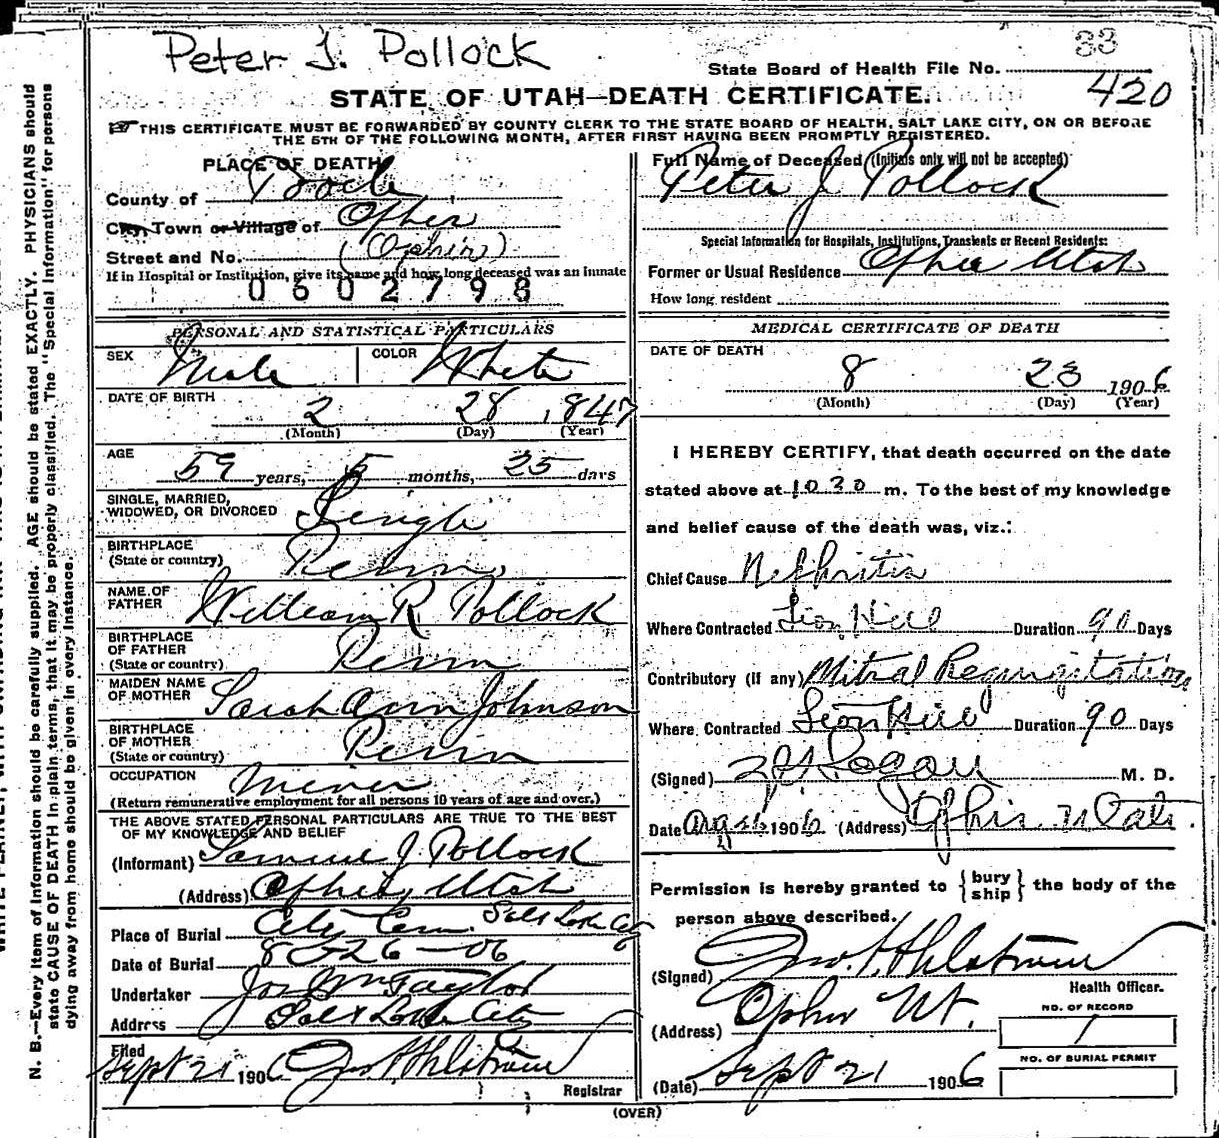 Peter J. Pollock
33
State Board of Health File No.
420
STATE OF UTAH—DEATH CERTIFICATE.
THIS CERTIFICATE MUST BE FORWARDED BY COUNTY CLERK TO THE STATE BOARD OF HEALTH, SALT LAKE CITY, ON OR BEFORE
THE 5TH OF THE FOLLOWING MONTH, AFTER FIRST HAVING BEEN PROMPTLY REGISTERED.
PLACE OF DEATH
County of Tooele
City, Town or Village of Opher
(Ophir)
Street and No.
If in Hospital or Institution, give its name and how long deceased was an inmate
0602798
PERSONAL AND STATISTICAL PARTICULARS
SEX Male COLOR White
DATE OF BIRTH 2 28 1847
(Month) (Day) (Year)
AGE 59 years, 5 months, 25 days
SINGLE, MARRIED,
WIDOWED, OR DIVORCED Single
BIRTHPLACE
(State or country) Penn,
NAME OF
FATHER William R Pollock
BIRTHPLACE
OF FATHER
(State or country) Penn
MAIDEN NAME
OF MOTHER Sarah Ann Johnson
BIRTHPLACE
OF MOTHER
(State or country) Penn
OCCUPATION Miner
(Return remunerative employment for all persons 10 years of age and over.)
THE ABOVE STATED PERSONAL PARTICULARS ARE TRUE TO THE BEST
OF MY KNOWLEDGE AND BELIEF
(Informant) Samuel J Pollock
(Address) Opher, Utah
Place of Burial City Cem. Salt Lake City
Date of Burial 8-26-06
Undertaker Jos Wm Taylor
Address Salt Lake City
Filed Sept 21 1906 Geo. A. Ahlstrom
Registrar
Full Name of Deceased (Initials only will not be accepted)
Peter J Pollock
Special Information for Hospitals, Institutions, Transients or Recent Residents:
Former or Usual Residence Opher Utah
How long resident
MEDICAL CERTIFICATE OF DEATH
DATE OF DEATH
8 23 1906
(Month) (Day) (Year)
I HEREBY CERTIFY, that death occurred on the date
stated above at 10 30 m. To the best of my knowledge
and belief cause of the death was, viz.:
Chief Cause Nephritis
Where Contracted Lion Hill Duration 90 Days
Contributory (if any) Mitral Regurgitation
Where Contracted Lion Hill Duration 90 Days
(Signed) M. D.
Date 1906 (Address) Ophir Utah.
Permission is hereby granted to { bury ship } the body of the
person above described.
(Signed) Geo. A. Ahlstrom
Health Officer.
(Address) Opher Ut.
NO. OF RECORD
1
(Date) Sept 21 1906
NO. OF BURIAL PERMIT
(OVER)
N. B.—Every item of information should be carefully supplied. AGE should be stated EXACTLY. PHYSICIANS should
state CAUSE OF DEATH in plain terms, that it may be properly classified. The "Special Information" for persons
dying away from home should be given in every instance.